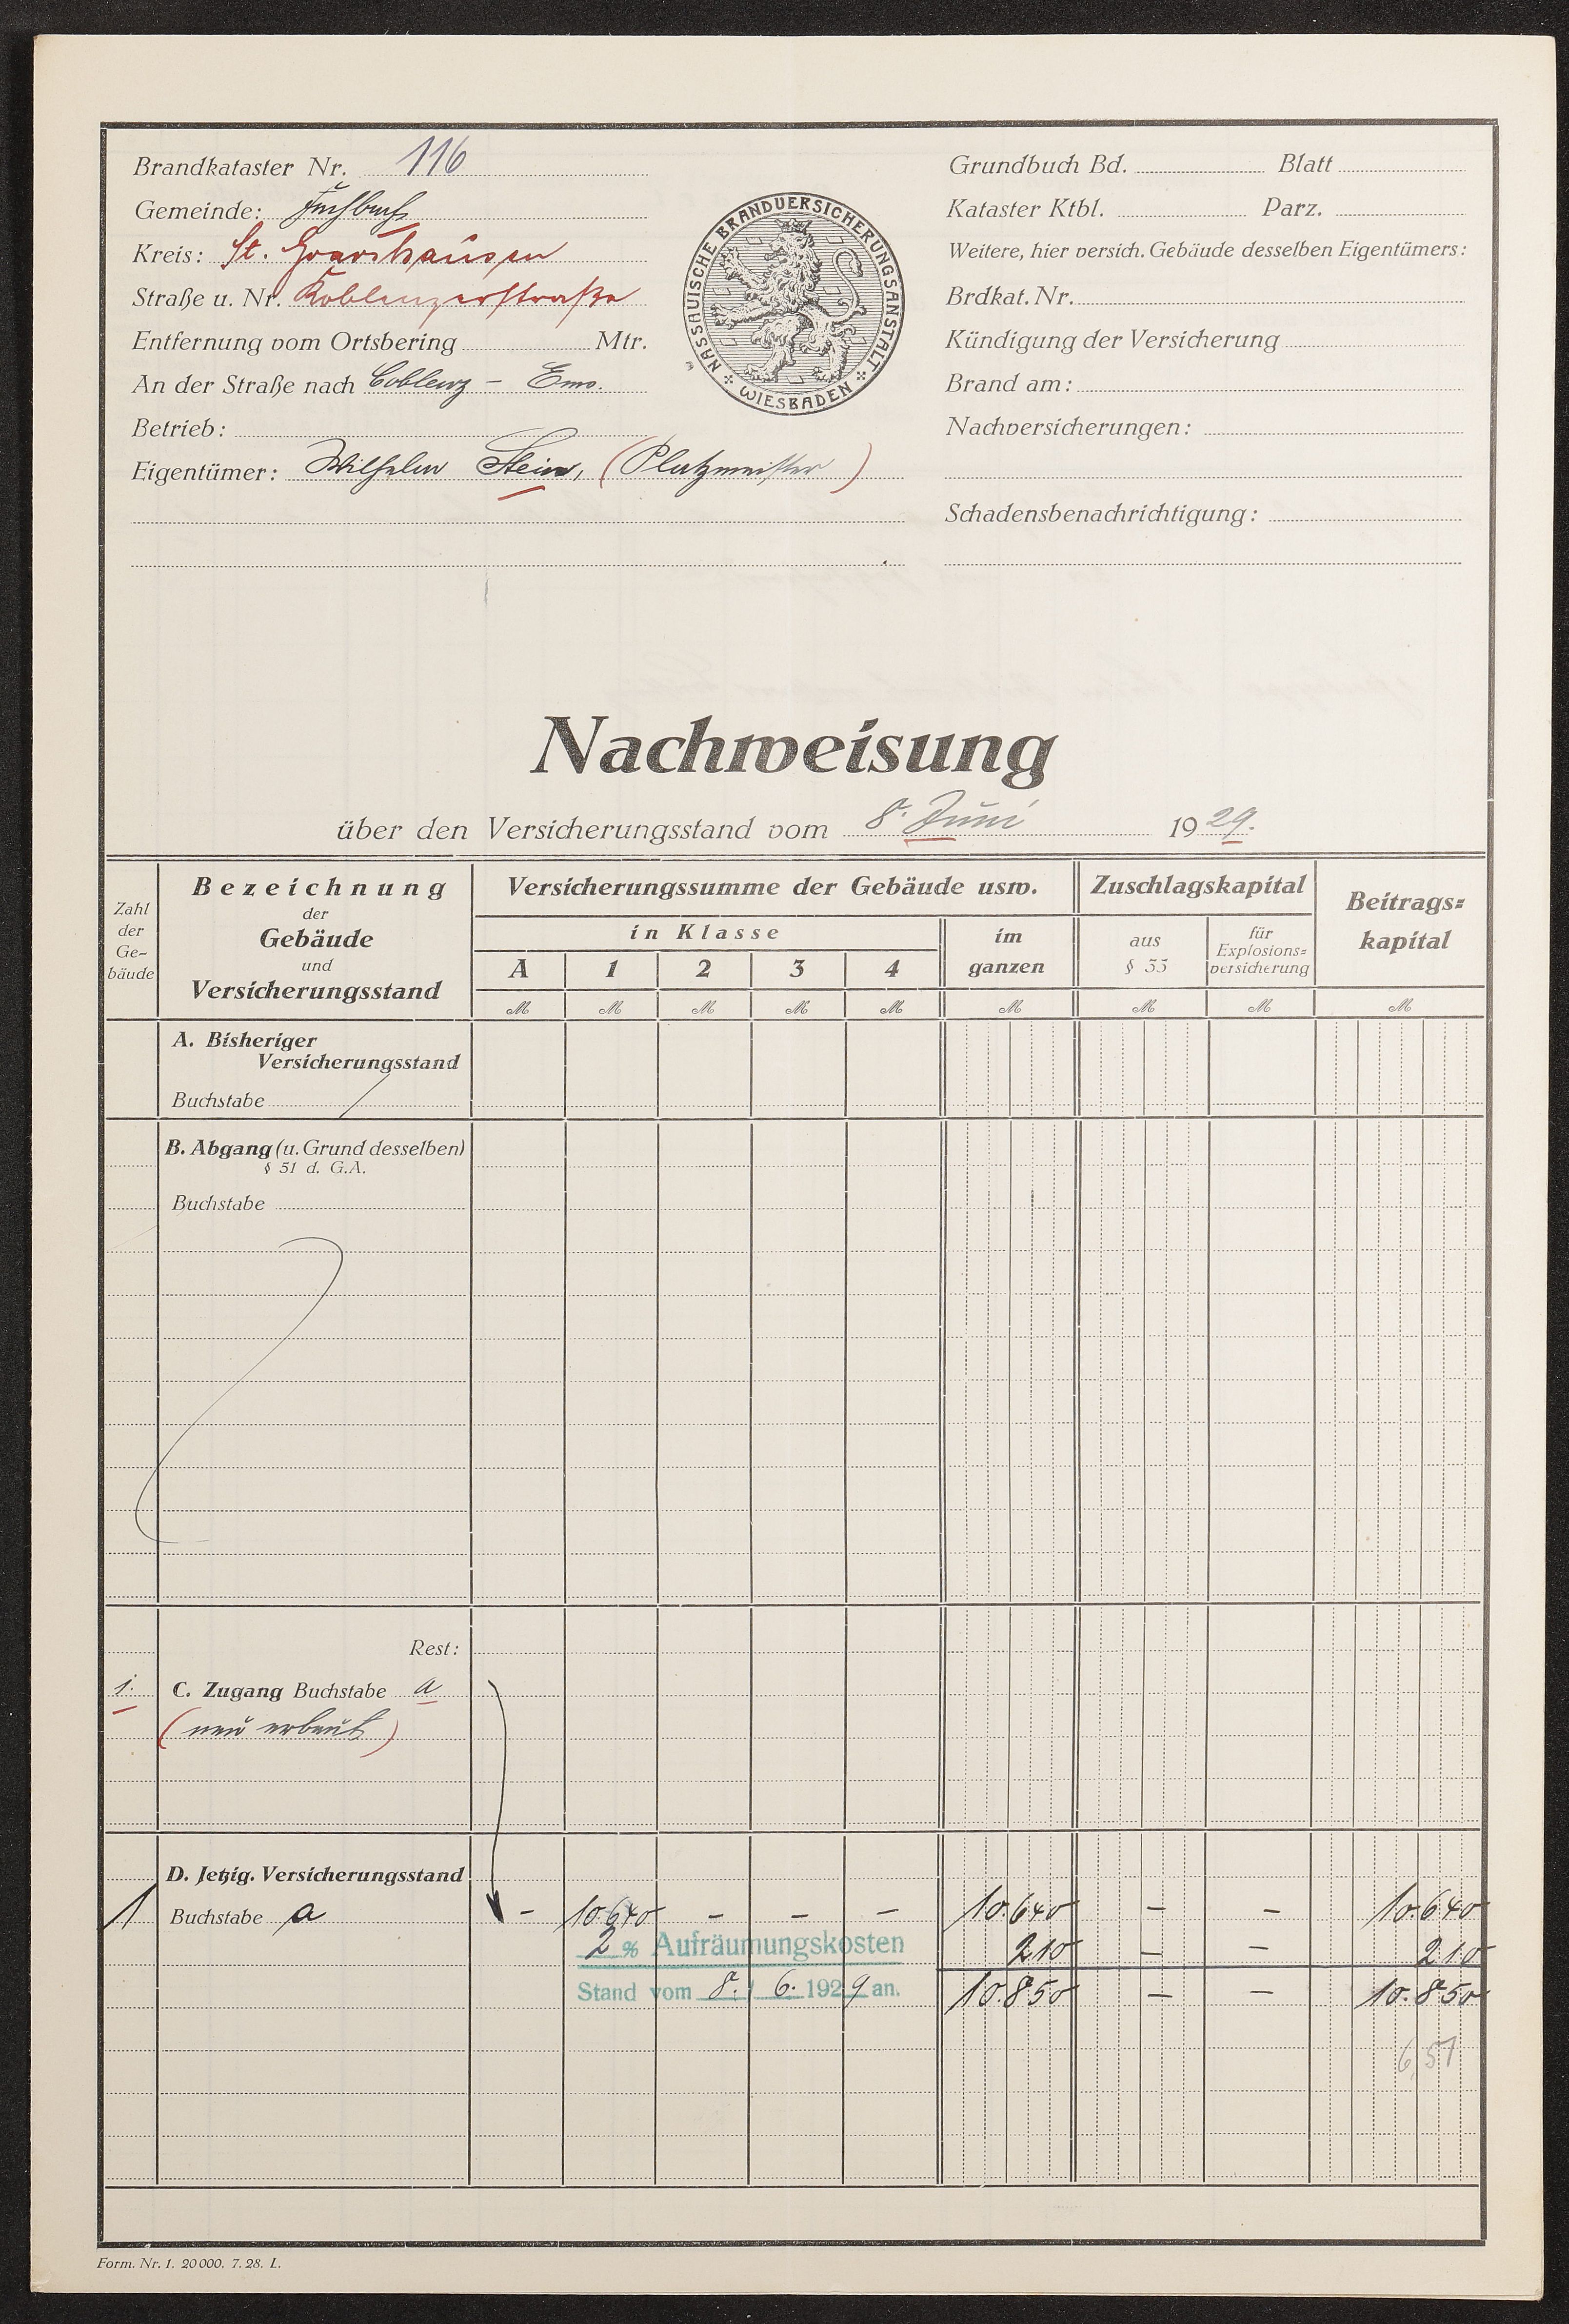 Brandkataster Nr. 116
Gemeinde: Fachbach
Kreis: St. Goarshausen
Straße u. Nr. Koblenzerstraße
Entfernung vom Ortsbering Mtr.
An der Straße nach Coblenz – Ems.
Betrieb:
Eigentümer: Wilhelm Stein, (Platzmeister)
NASSAUISCHE BRANDVERSICHERUNGSANSTALT
WIESBADEN
Grundbuch Bd. Blatt
Kataster Ktbl. Parz.
Weitere, hier versich. Gebäude desselben Eigentümers:
Brdkat. Nr.
Kündigung der Versicherung
Brand am:
Nachversicherungen:
Schadensbenachrichtigung:
Nachweisung
über den Versicherungsstand vom 8. Juni 1929.
Zahl der Ge-bäude
Bezeichnung
der
Gebäude
und
Versicherungsstand
Versicherungssumme der Gebäude usw.
in Klasse
A 1 2 3 4
im ganzen
Zuschlagskapital
aus § 33
für Explosions-versicherung
Beitrags-kapital
M M M M M M M M M
A. Bisheriger
Versicherungsstand
Buchstabe
B. Abgang (u. Grund desselben)
§ 51 d. G.A.
Buchstabe
Rest:
1. C. Zugang Buchstabe a
(neu erbaut)
D. Jetzig. Versicherungsstand
1 Buchstabe a – 10640 – – – 10.640 – – 10.640
2 % Aufräumungskosten 210 – – 210
Stand vom 8. 6. 1929 an. 10.850 – – 10.850
6,51
Form. Nr. 1. 20000. 7. 28. L.